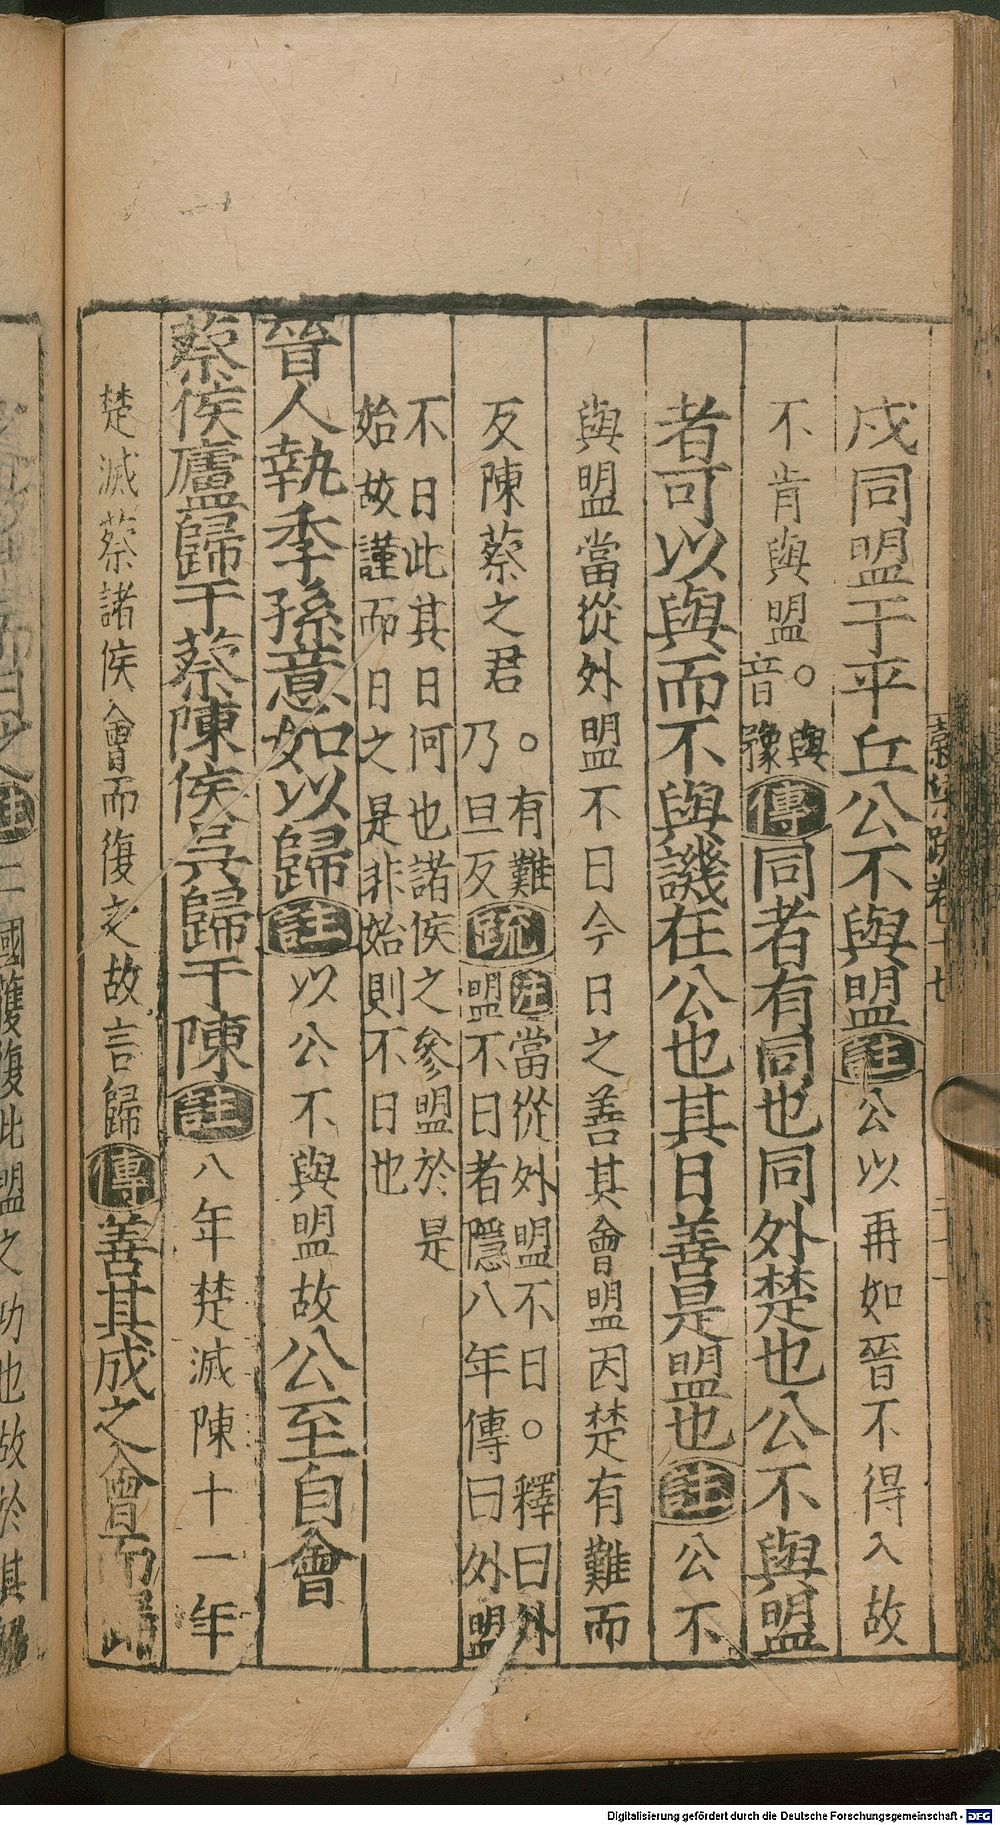 戍同盟于平丘公不與盟註公以再如晉不得入故
不肯與盟。音與豫傳同者有同也同外楚也公不與盟
者可以與而不與譏在公也其日善是盟也註公不
與盟當從外盟不日今日之善其會盟因楚有難而
反陳蔡之君。有難乃旦反疏注當從外盟不日。釋曰外盟不日者隱八年傳曰外盟
不日此其日何也諸侯之參盟於是
始故謹而日之是非始則不日也
晉人執季孫薏如以歸註以公不與盟故公至自會
蔡侯廬歸于蔡陳侯吳歸于陳註八年楚滅陳十一年
楚滅蔡諸侯會而復之故言歸傳善其成之會而歸
二國獲復此盟之功也故於其
Digitalisierung gefördert durch die Deutsche Forschungsgemeinschaft - DFG